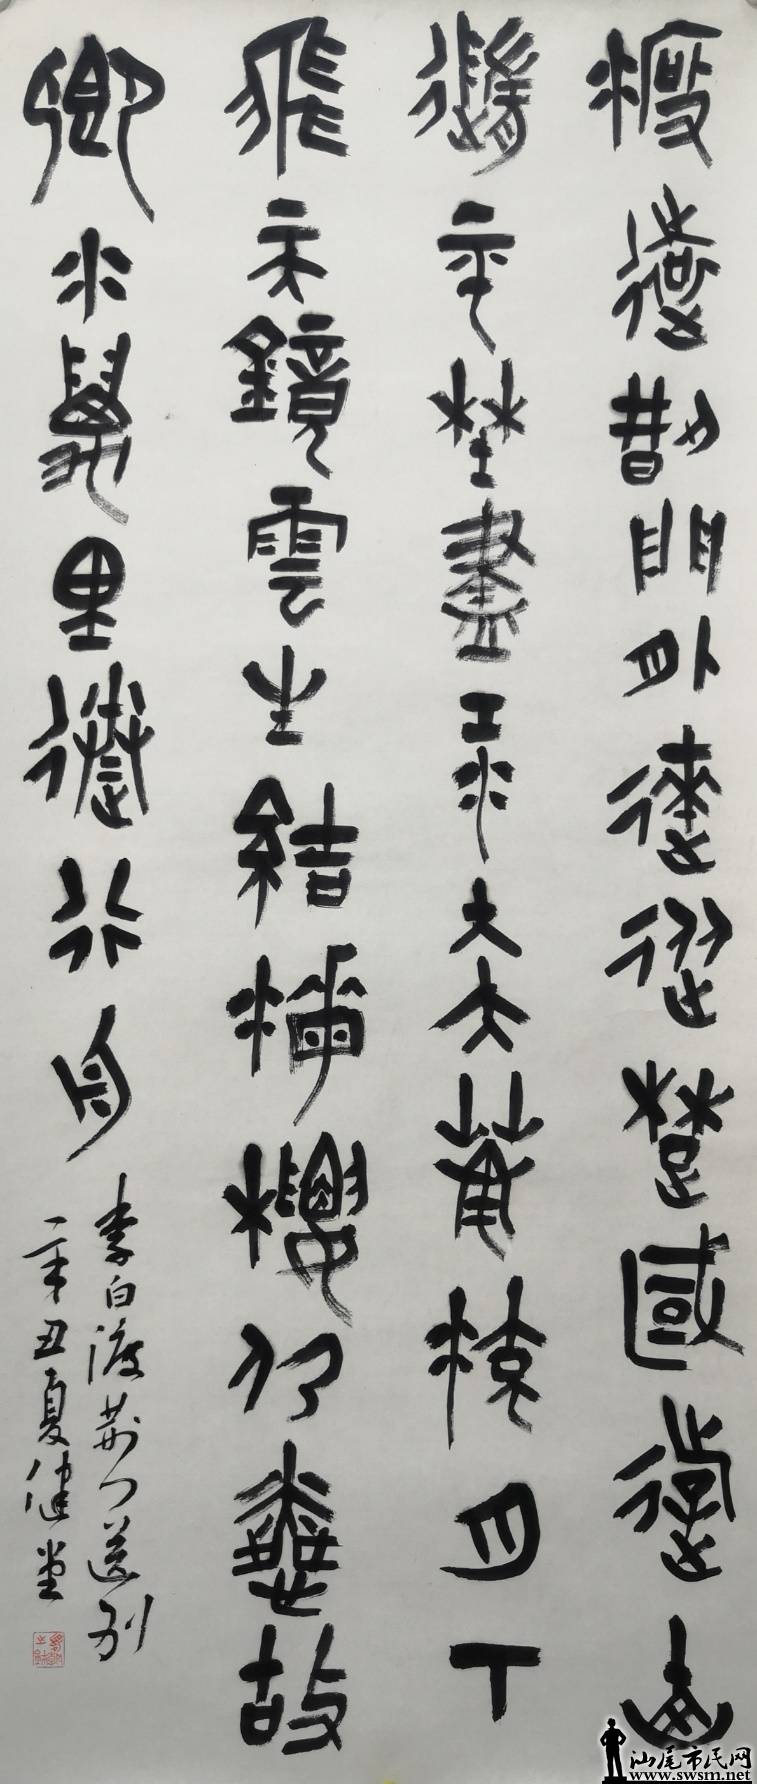 渡遠荊門外來從楚國遊山
隨平野盡江入大荒流月下
飛天鏡雲生結海樓仍憐故
鄉水萬里送行舟
李白渡荊門送别
辛丑夏健堂
汕尾市民网
www.swsm.net